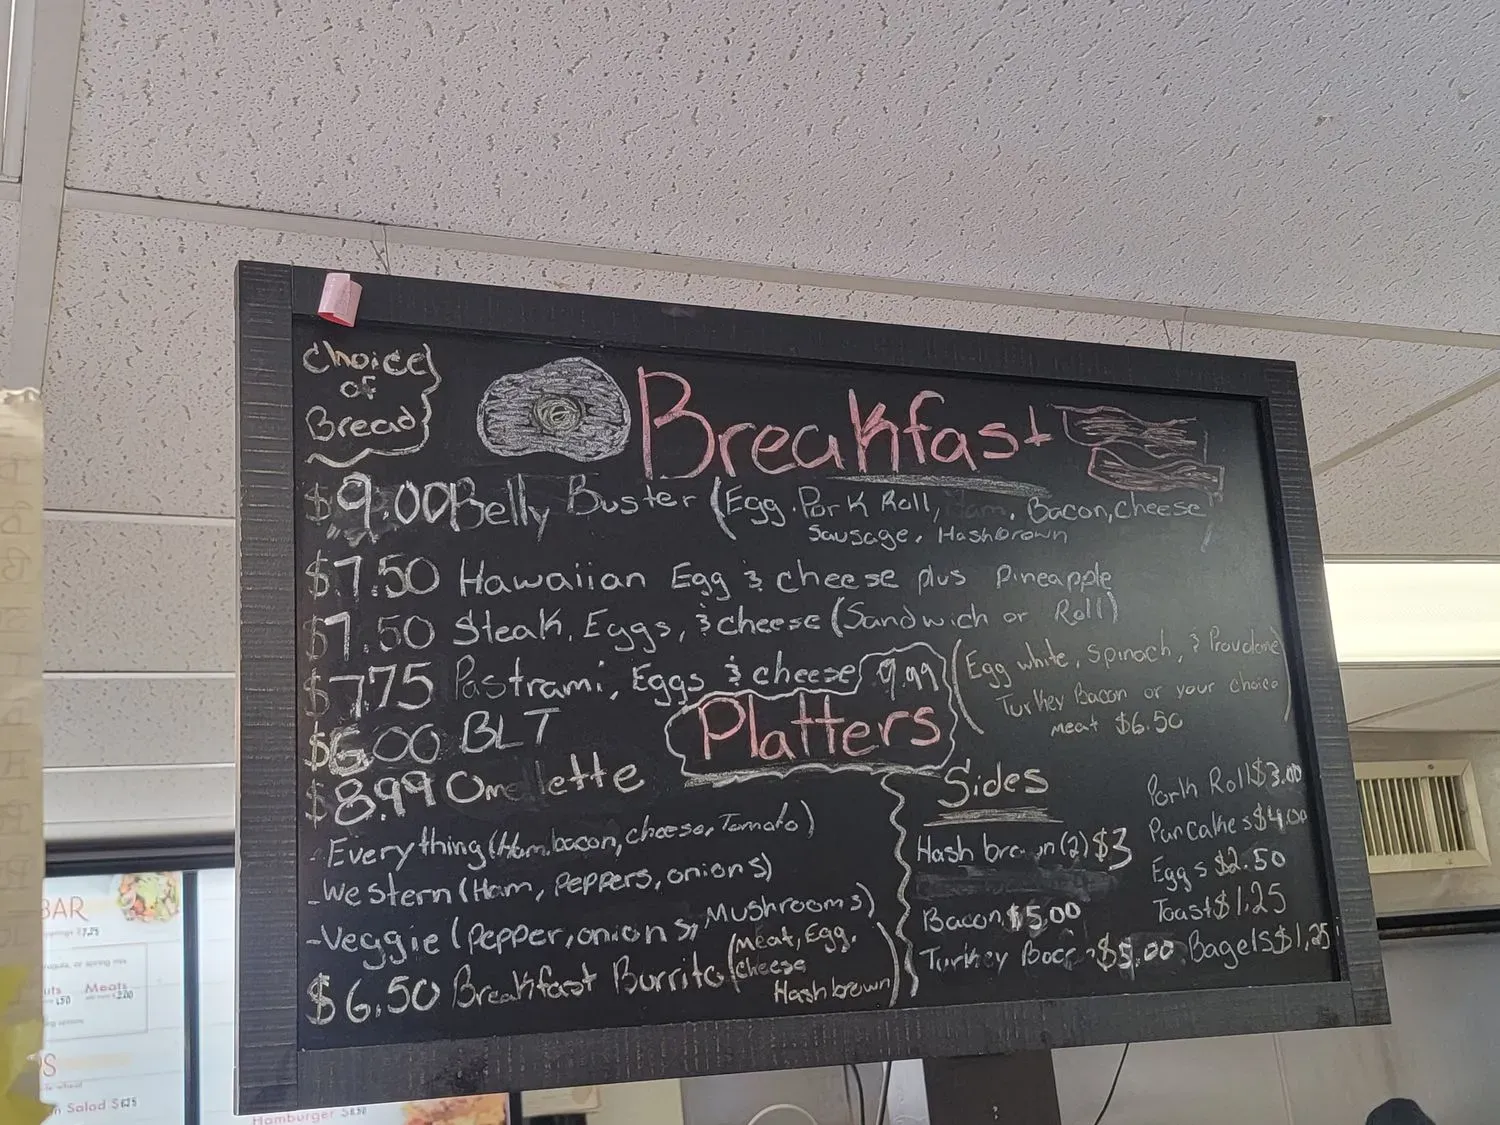 Choice
of
Bread
Breakfast
$9.00 Belly Buster (Egg. Pork Roll, Ham, Bacon, cheese
Sausage, Hashbrown
$7.50 Hawaiian Egg & cheese plus Pineapple
$7.50 Steak, Eggs, & cheese (Sandwich or Roll)
$7.75 Pastrami, Eggs & cheese
$6.00 BLT
$8.99 Omelette
- Everything (Ham, bacon, cheese, Tomato)
- Western (Ham, Peppers, onions)
- Veggie (Pepper, onions, Mushrooms)
$6.50 Breakfast Burrito (Meat, Egg,
cheese
Hashbrown)
9.99
Platters
(Egg white, spinach, & Provolone
Turkey Bacon or your choice
meat $6.50
Sides
Hash brown (2) $3
Bacon $5.00
Turkey Bacon $5.00
Pork Roll $3.00
Pancakes $4.00
Eggs $2.50
Toast $1.25
Bagels $1.25
BAR
$7.25
Meats
Salad $6.25
Hamburger